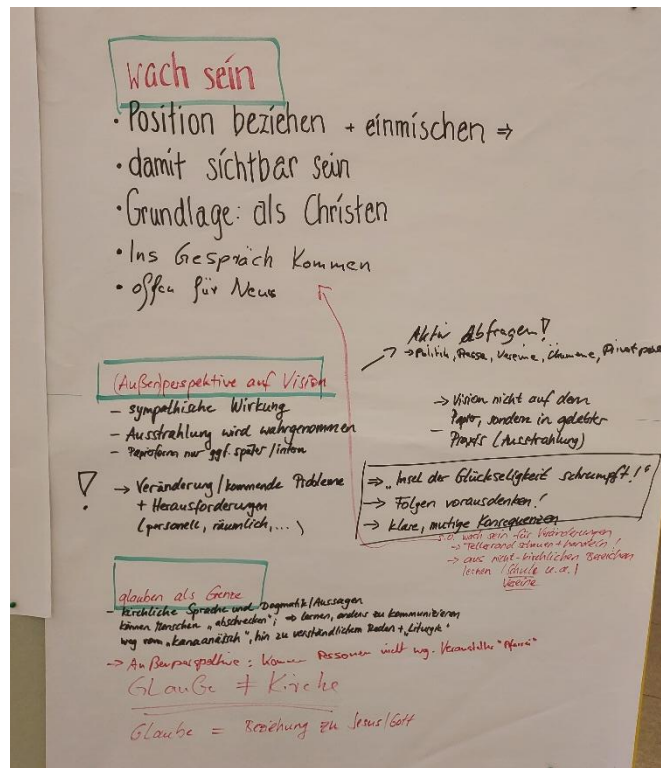 wach sein
• Position beziehen + einmischen ⇒
• damit sichtbar sein
• Grundlage: als Christen
• Ins Gespräch kommen
• offen für Neues
Aktiv Abfragen!
→ Politik, Presse, Vereine, Ökumene, Privatpers
(Außen)perspektive auf Vision
– sympathische Wirkung
– Ausstrahlung wird wahrgenommen
– Papierform nur ggf. später / intern
! → Veränderung / kommende Probleme
+ Herausforderungen
(personell, räumlich, ...)
→ Vision nicht auf dem
Papier, sondern in gelebter
– Praxis (Ausstrahlung)
⇒ „Insel der Glückseligkeit schrumpft!“
→ Folgen vorausdenken!
→ klare, mutige Konsequenzen
s.o. wach sein für Veränderungen
→ Tellerrand schauen + handeln!
→ aus nicht-kirchlichen Bereichen
lernen (Schule u.a.)
Vereine
glauben als Grenze
– kirchliche Sprache und Dogmatik/Aussagen
können Menschen „abschrecken“; ⇒ lernen, anders zu kommunizieren
weg vom „kanaanäisch“, hin zu verständlichem Reden + „Liturgie“
→ Außenperspektive: kommen Personen nicht wg. Veranstalter "Pfarrei"
Glaube ≠ Kirche
Glaube = Beziehung zu Jesus/Gott